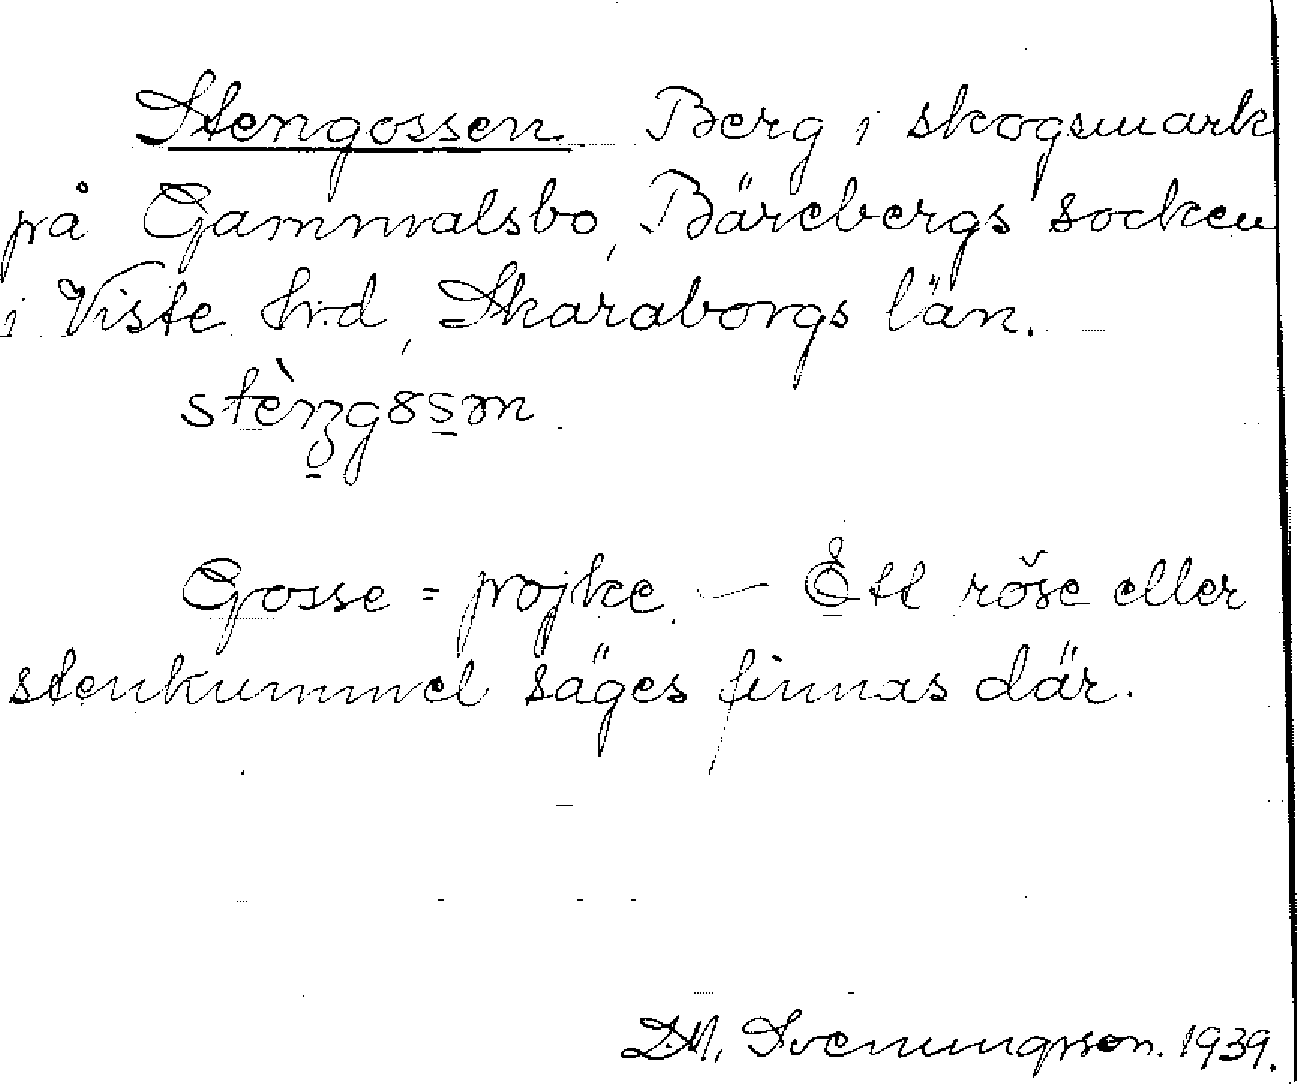 Stengossen Berg i skogsmark
på Gammalsbo, Bärebergs socken
i Viste hrd, Skaraborgs län.
Gosse = pojke. — Ett röse eller
stenkummel säges finnas där.
D.M. Svenungsson. 1939.